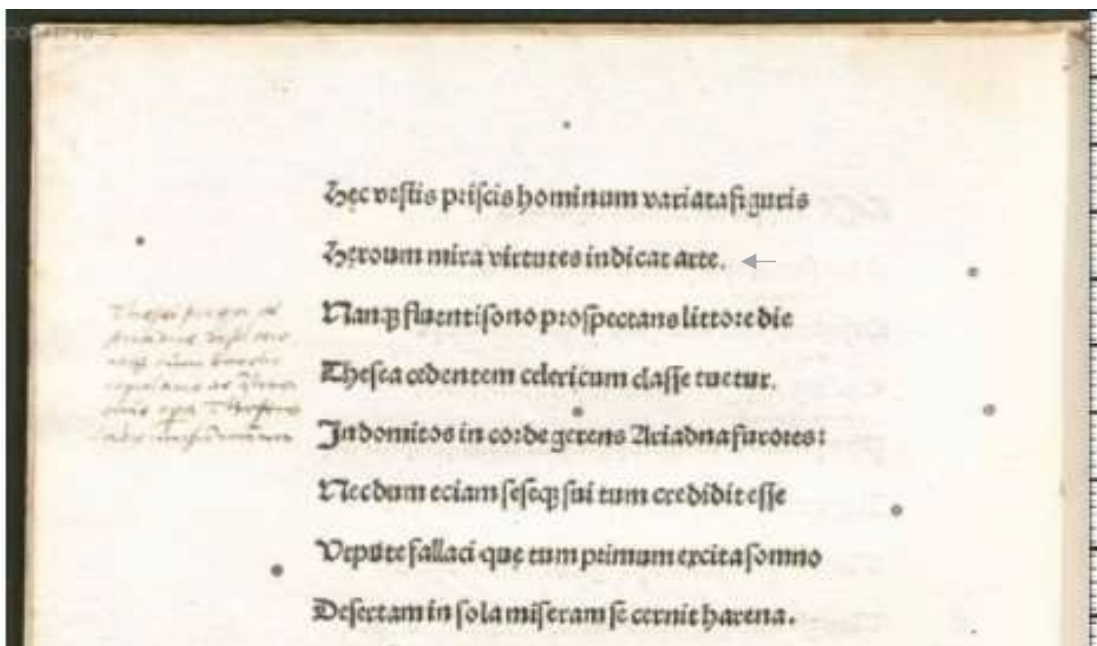 Hęc vestis priscis hominum variata figuris
Heroum mira virtutes indicat arte.
Nanqꝫ fluentisono prospectans littore die
Thesea cedentem celeri cum classe tuetur.
Indomitos in corde gerens Ariadna furores:
Necdum eciam seseqꝫ sui tum credidit esse
Vt pute fallaci quę tum primum excita somno
Desertam in sola miseram se cernit harena.